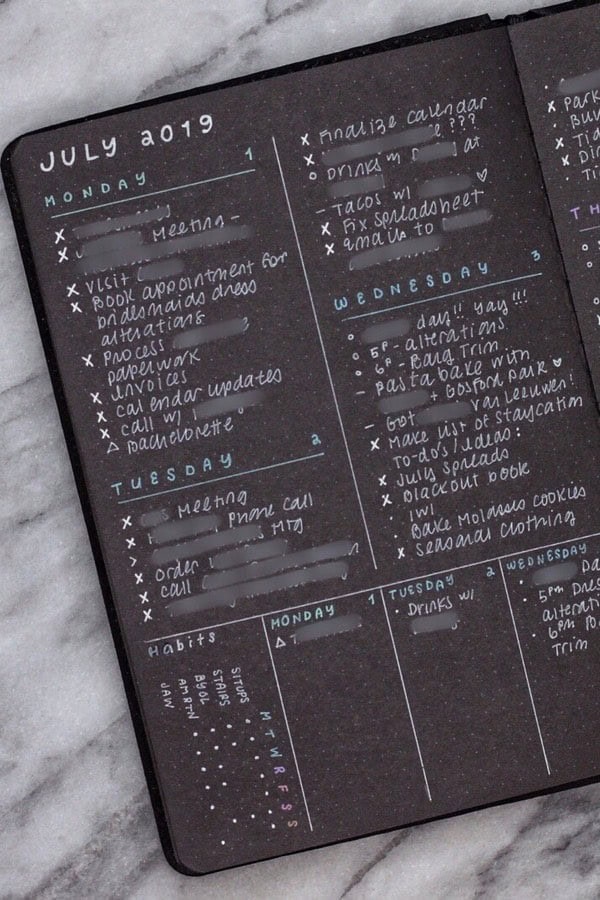 JULY 2019
MONDAY 1
x
x Meeting –
x visit
x Book appointment for
bridesmaids dress
alterations
x Process
paperwork
x invoices
x calendar updates
x call w/
△ Bachelorette
TUESDAY 2
x Meeting
x Phone call
> Mtg
x order
x call
x
x Finalize calendar
x e ???
o Drinks w at
– Tacos w/ ♡
x Fix spreadsheet
x emails to
WEDNESDAY 3
o day!! yay!!!
o 5P – alterations
o 6P – Bang Trim
– Pasta bake with
+ Gosford Park ♥
– Got Van Leeuwen!
x Make list of staycation
to-do's/ideas:
x July spreads
x Blackout book
· IWL
· Bake Molasses cookies
x seasonal clothing
x Park
· Bu
x Tid
x Di
· Ti
TH
Habits
JAW
AM RTN
BYOL
STAIRS
SITUPS
M T W R F S S
MONDAY 1
△ T
TUESDAY 2
· Drinks w/
WEDNESDAY
· Da
· 5pm Dres
alterati
· 6pm
Trim